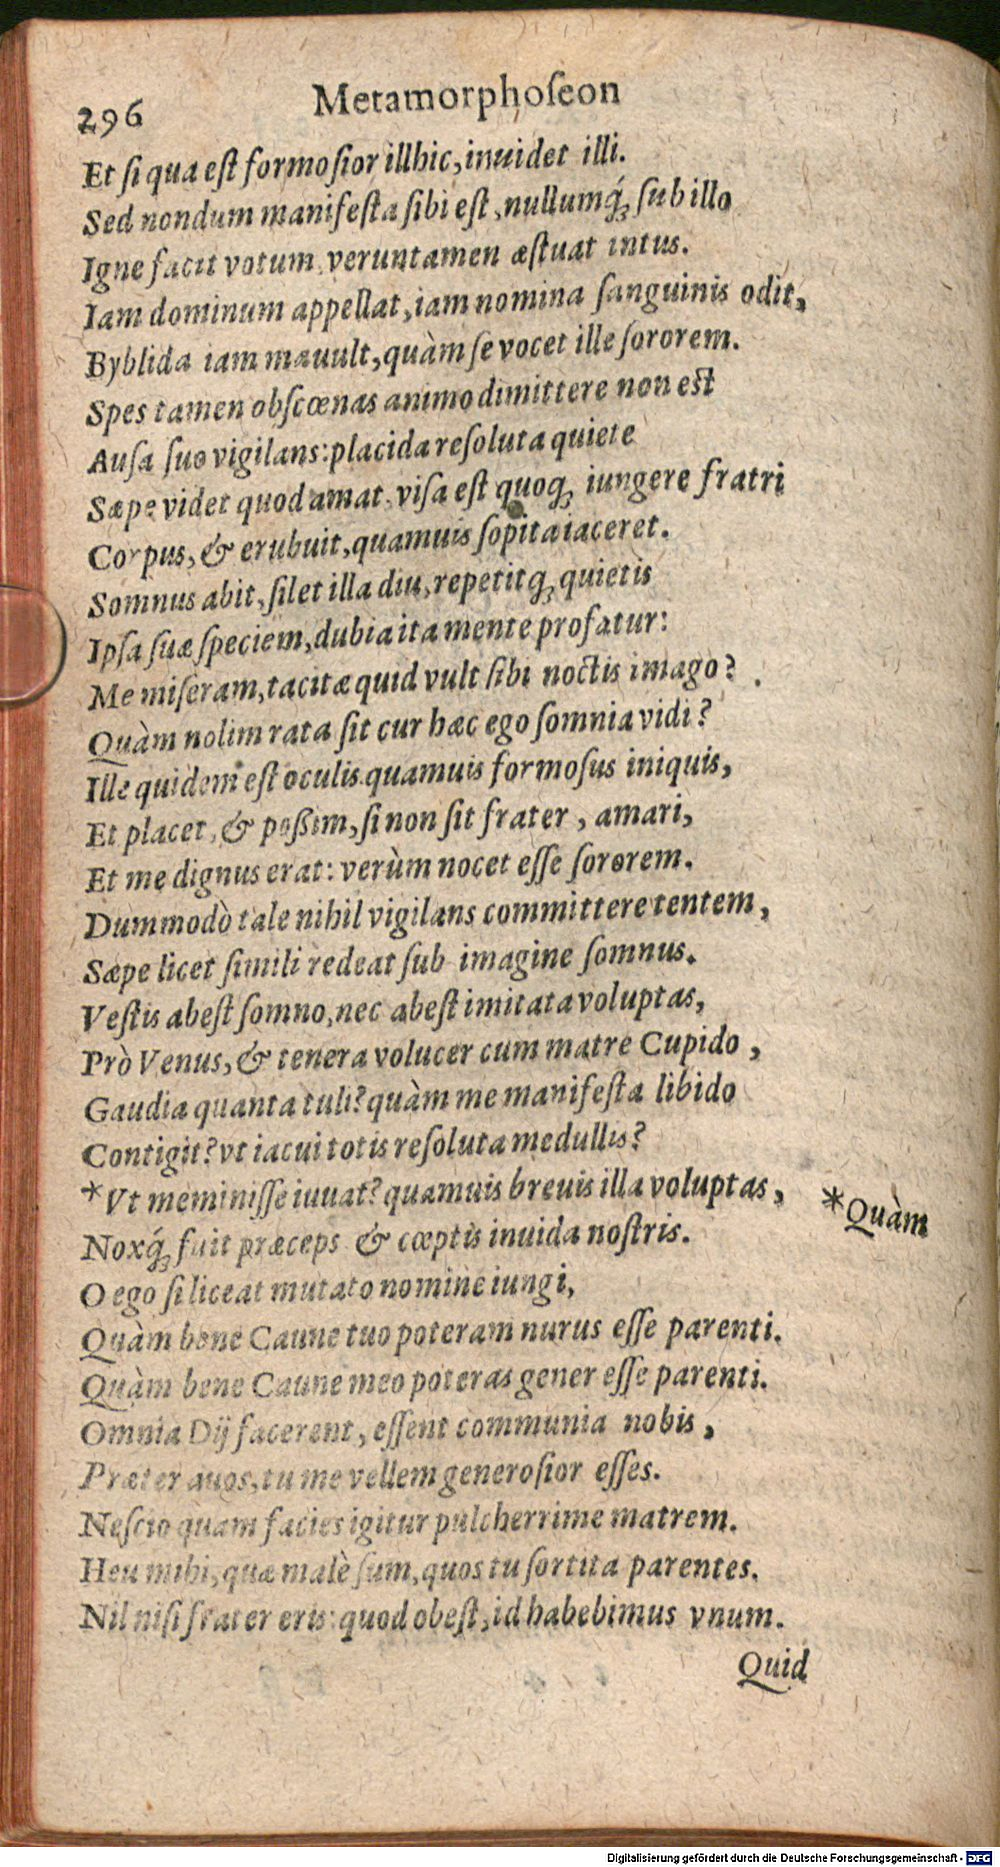 296 Metamorphoſeon
Et ſi qua eſt formoſior illhic, inuidet illi.
Sed nondum manifeſta ſibi eſt, nullumq́; ſub illo
Igne facit votum, veruntamen æſtuat intus.
Iam dominum appellat, iam nomina ſanguinis odit,
Byblida iam mauult, quàm ſe vocet ille ſororem.
Spes tamen obſcœnas animo dimittere non eſt
Auſa ſuo vigilans: placida reſoluta quiete
Sæpe videt quod amat. viſa eſt quoq; iungere fratri
Corpus, & erubuit, quamuis ſopita iaceret.
Somnus abit, ſilet illa diu, repetitq; quietis
Ipſa ſuæ ſpeciem, dubia ita mente profatur:
Me miſeram, tacitæ quid vult ſibi noctis imago?
Quàm nolim rata ſit cur hæc ego ſomnia vidi?
Ille quidem eſt oculis quamuis formoſus iniquis,
Et placet, & poßim, ſi non ſit frater, amari,
Et me dignus erat: verùm nocet eſſe ſororem.
Dummodò tale nihil vigilans committere tentem,
Sæpe licet ſimili redeat ſub imagine ſomnus.
Veſtis abeſt ſomno, nec abeſt imitata voluptas,
Prò Venus, & tenera volucer cum matre Cupido,
Gaudia quanta tuli? quàm me manifeſta libido
Contigit? vt iacui totis reſoluta medullis?
*Vt meminiſſe iuuat? quamuis breuis illa voluptas, *Quàm
Noxq́; fuit præceps & cœptis inuida noſtris.
O ego ſi liceat mutato nomine iungi,
Quàm bene Caune tuo poteram nurus eſſe parenti.
Quàm bene Caune meo poteras gener eſſe parenti.
Omnia Dij facerent, eſſent communia nobis,
Præter auos, tu me vellem generoſior eſſes.
Neſcio quam facies igitur pulcherrime matrem.
Heu mihi, quæ malè ſum, quos tu ſortita parentes.
Nil niſi frater eris: quod obeſt, id habebimus vnum.
Quid
Digitalisierung gefördert durch die Deutsche Forschungsgemeinschaft - DFG